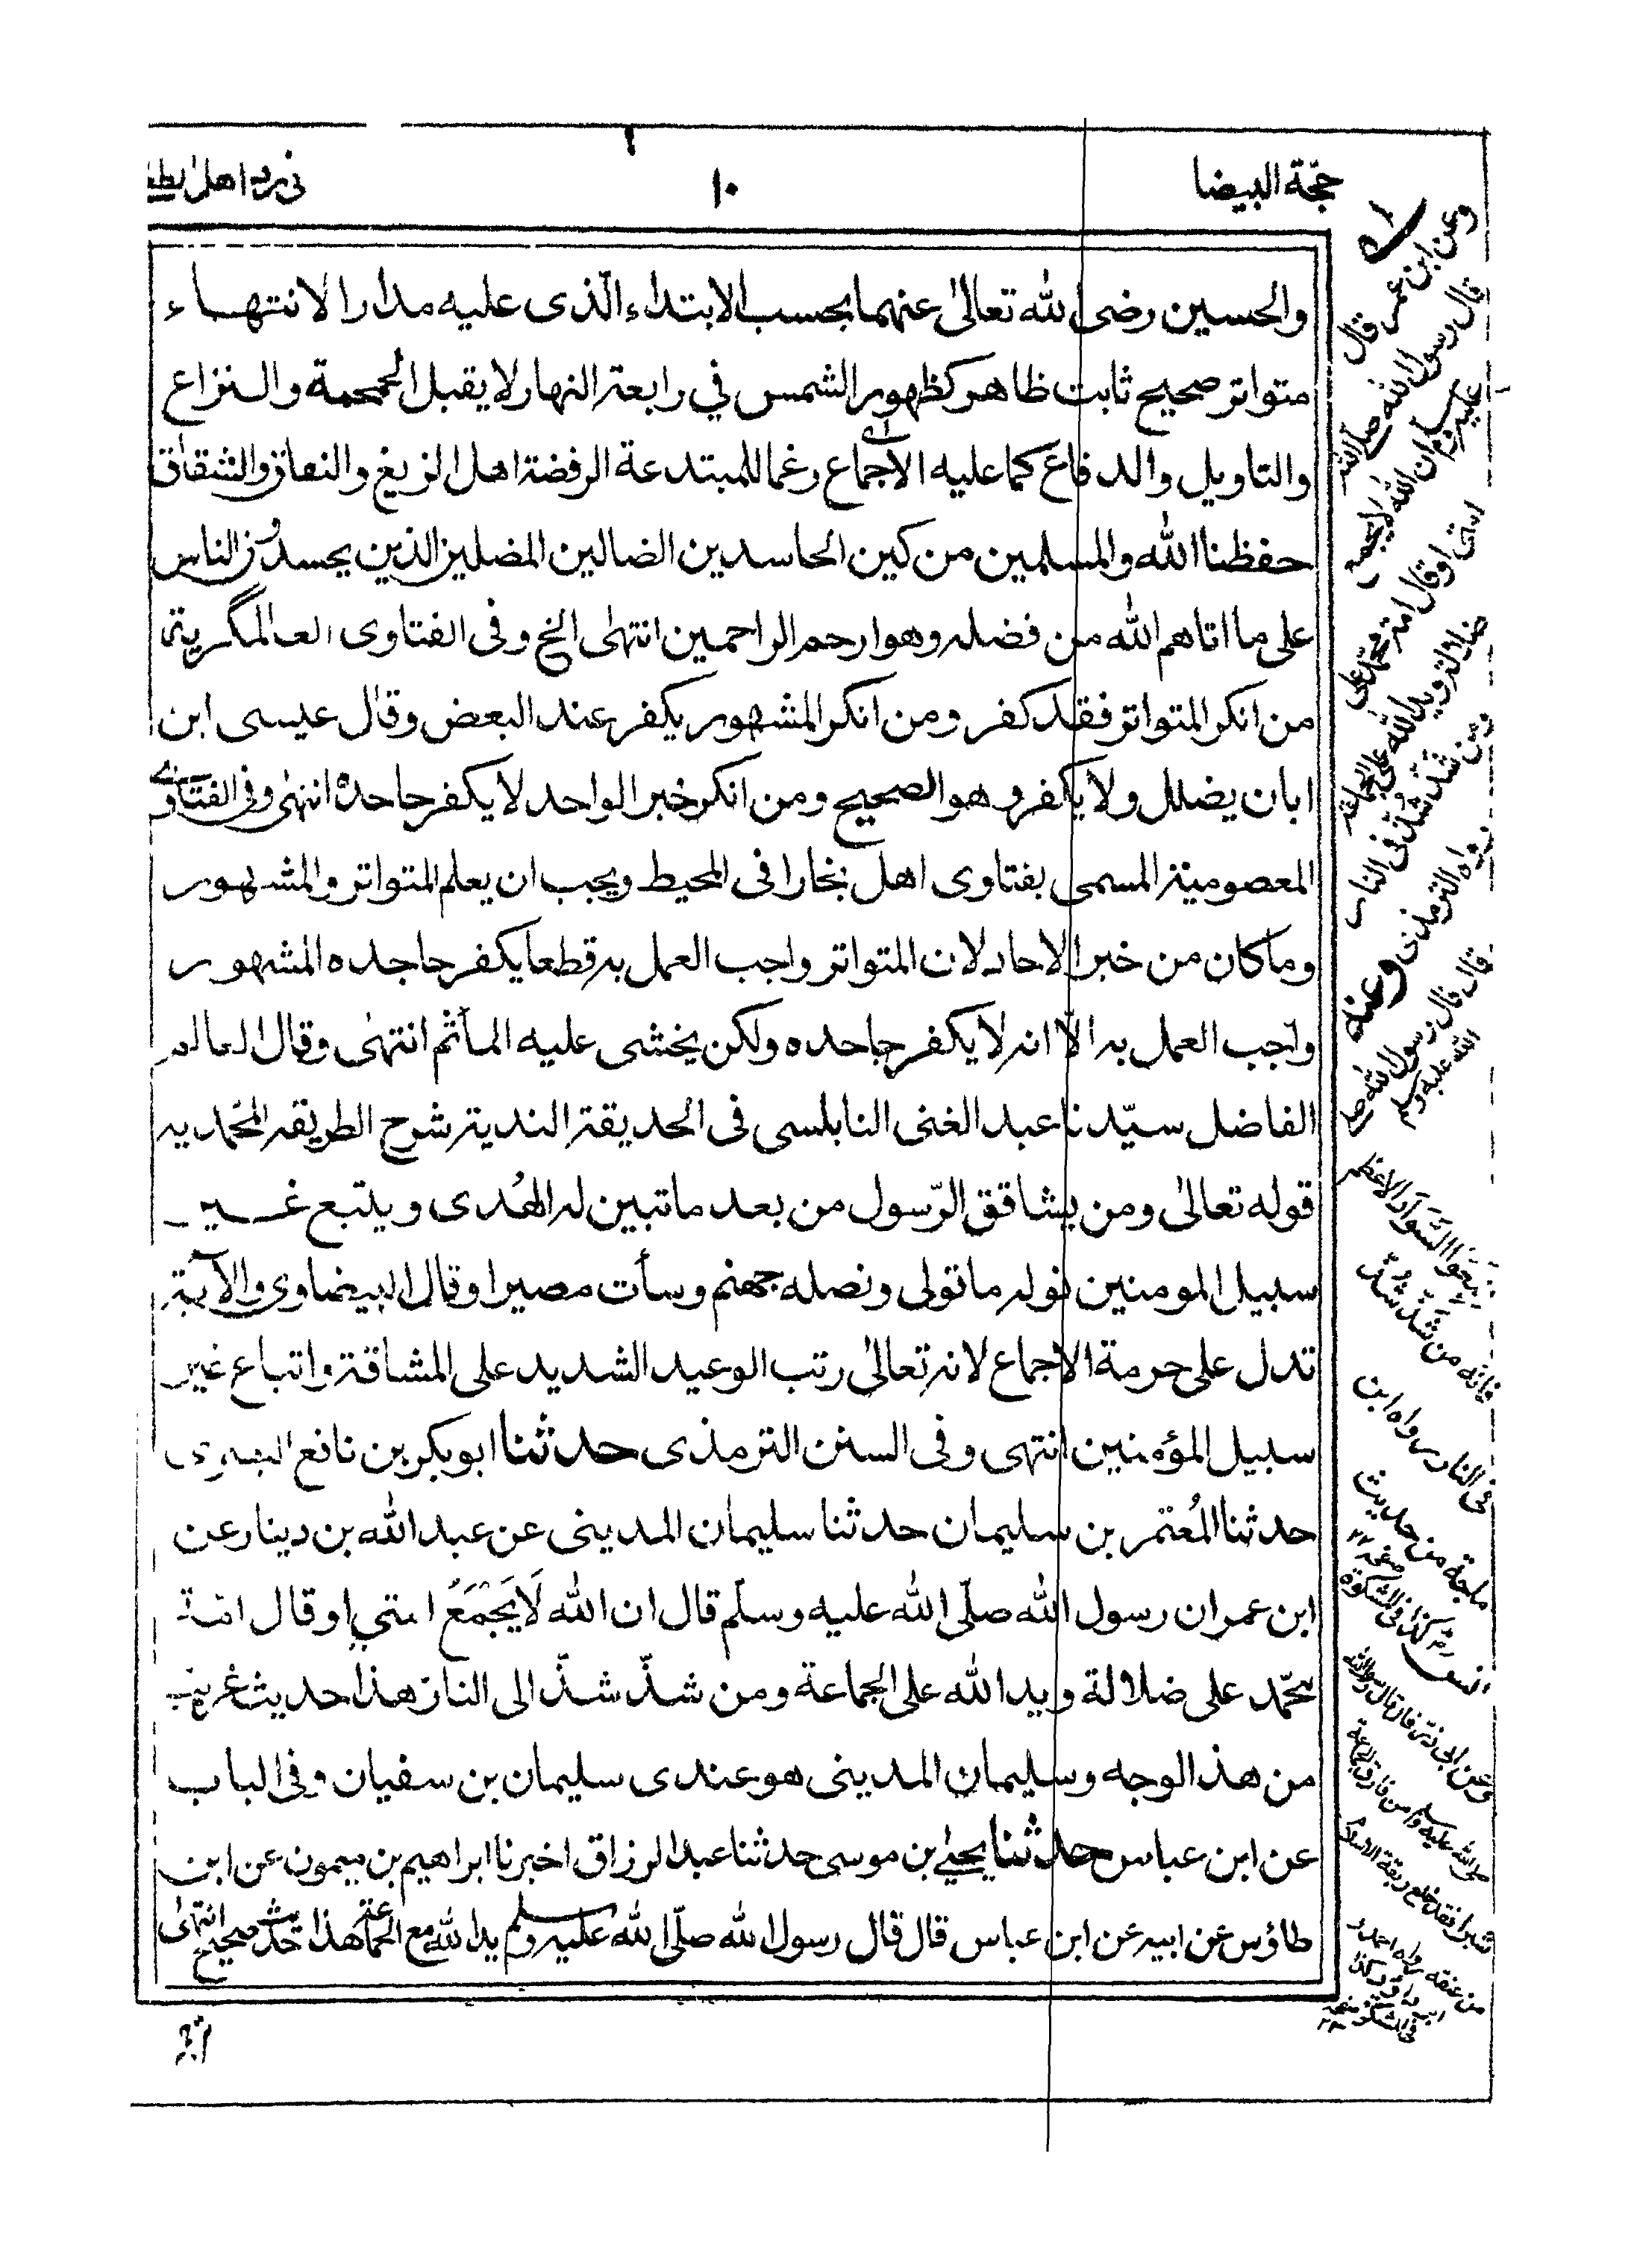 حجّة البيضا
١٠
فى رد اهل
والحسين رضى الله تعالىٰ عنهما بحسب الابتداء الّذى عليه مدار الانتهاء
متواتر صحيح ثابت ظاهر كظهور الشمس في رابعة النهار لا يقبل الجمحمة والنزاع
والتاويل والدفاع كما عليه الاجماع رغما للمبتدعة الرفضة اهل الزيغ والنفاق والشقاق
حفظنا الله والمسلمين من كين الحاسدين الضالين المضلين الذين يحسدون الناس
على ما اتاهم الله من فضله وهو ارحم الراحمين انتهىٰ الخ وفى الفتاوى العالمگرية
من انكر المتواتر فقد كفر ومن انكر المشهور يكفر عند البعض وقال عيسى ابن
ابان يضلل ولا يكفر وهو الصحيح ومن انكر خبر الواحد لا يكفر جاحده انتهىٰ وفى الفتاوى
المعصومية المسمى بفتاوى اهل بخارا فى المحيط ويجب ان يعلم المتواتر والمشهور
وما كان من خبر الاحاد لان المتواتر واجب العمل به قطعا يكفر جاحده المشهور
واجب العمل به الّا انه لا يكفر جاحده ولكن يخشى عليه المأثم انتهىٰ وقال العالم
الفاضل سيّدنا عبد الغنى النابلسى فى الحديقة الندية شرح الطريقه المحمديه
قوله تعالىٰ ومن يشاقق الرّسول من بعد ما تبين له الهُدى ويتبع غير
سبيل المومنين نوله ما تولى ونصله جهنم وسأت مصيرا وقال البيضاوى والآية
تدل على حرمة الاجماع لانه تعالىٰ رتب الوعيد الشديد على المشاقة واتباع غير
سبيل المؤمنين انتهى وفى السنن الترمذى حدثنا ابو بكر بن نافع البصرى
حدثنا المُعتمر بن سليمان حدثنا سليمان المدينى عن عبد الله بن دينار عن
ابن عمر ان رسول الله صلّى الله عليه وسلّم قال ان الله لَا يَجْمَعُ امتي او قال امة
محمّد على ضلالة ويد الله على الجماعة ومن شذّ شذّ الى النار هذا حديث غريب
من هذ الوجه وسليمان المدينى هو عندى سليمان بن سفيان وفى الباب
عن ابن عباس حدثنا يحيىٰ بن موسى حدثنا عبد الرزاق اخبرنا ابراهيم بن ميمون عن ابن
طاؤس عن ابيه عن ابن عباس قال قال رسول الله صلّى الله عليه وسلم يد الله مع الجماعة هذا حديث صحيح انتهىٰ
وعن ابن عمر قال
قال رسول الله صلى الله
عليه وسلم ان الله لا يجمع
امتى او قال امة محمّد على
ضلالة ويد الله على الجماعة
ومن شذّ شذّ فى النار
رواه الترمذى وعنه
قال قال رسول الله صلى
الله عليه وسلم
اتبعوا السواد الاعظم
فانه من شذّ شذّ
فى النار رواه ابن
ماجة من حديث
انس كذا فى المشكوة
وعن ابى ذر قال قال رسول الله
صلى الله عليه وسلم من فارق الجماعة
شبرا فقد خلع ربقة الاسلام
من عنقه رواه احمد و
ابو داؤد كذا
فى المشكوة